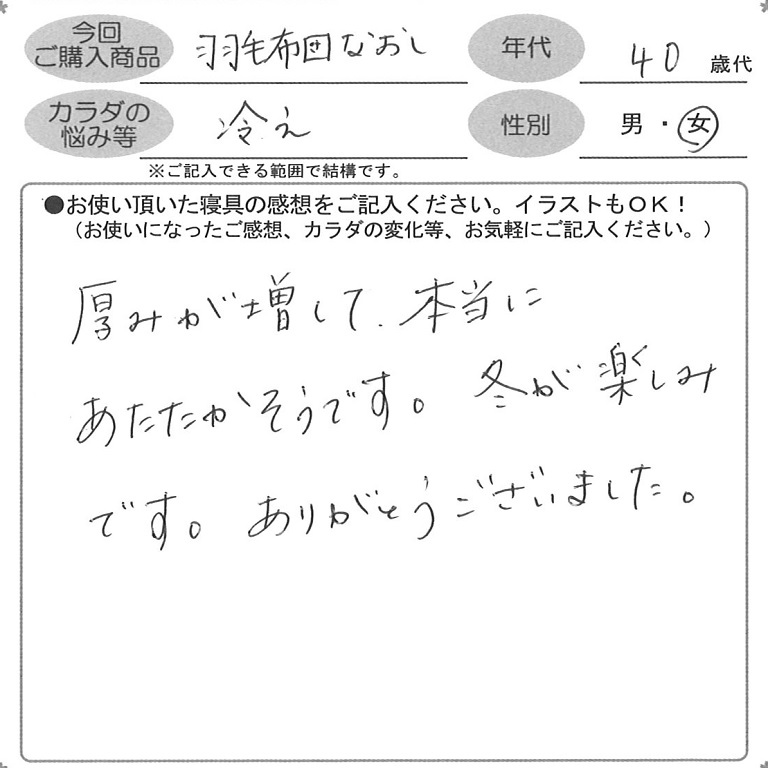 今回
ご購入商品
羽毛布団なおし
年代
40 歳代
カラダの
悩み等
冷え
性別
男・女
※ご記入できる範囲で結構です。
●お使い頂いた寝具の感想をご記入ください。イラストもOK！
（お使いになったご感想、カラダの変化等、お気軽にご記入ください。）
厚みが増して、本当に
あたたかそうです。冬が楽しみ
です。ありがとうございました。